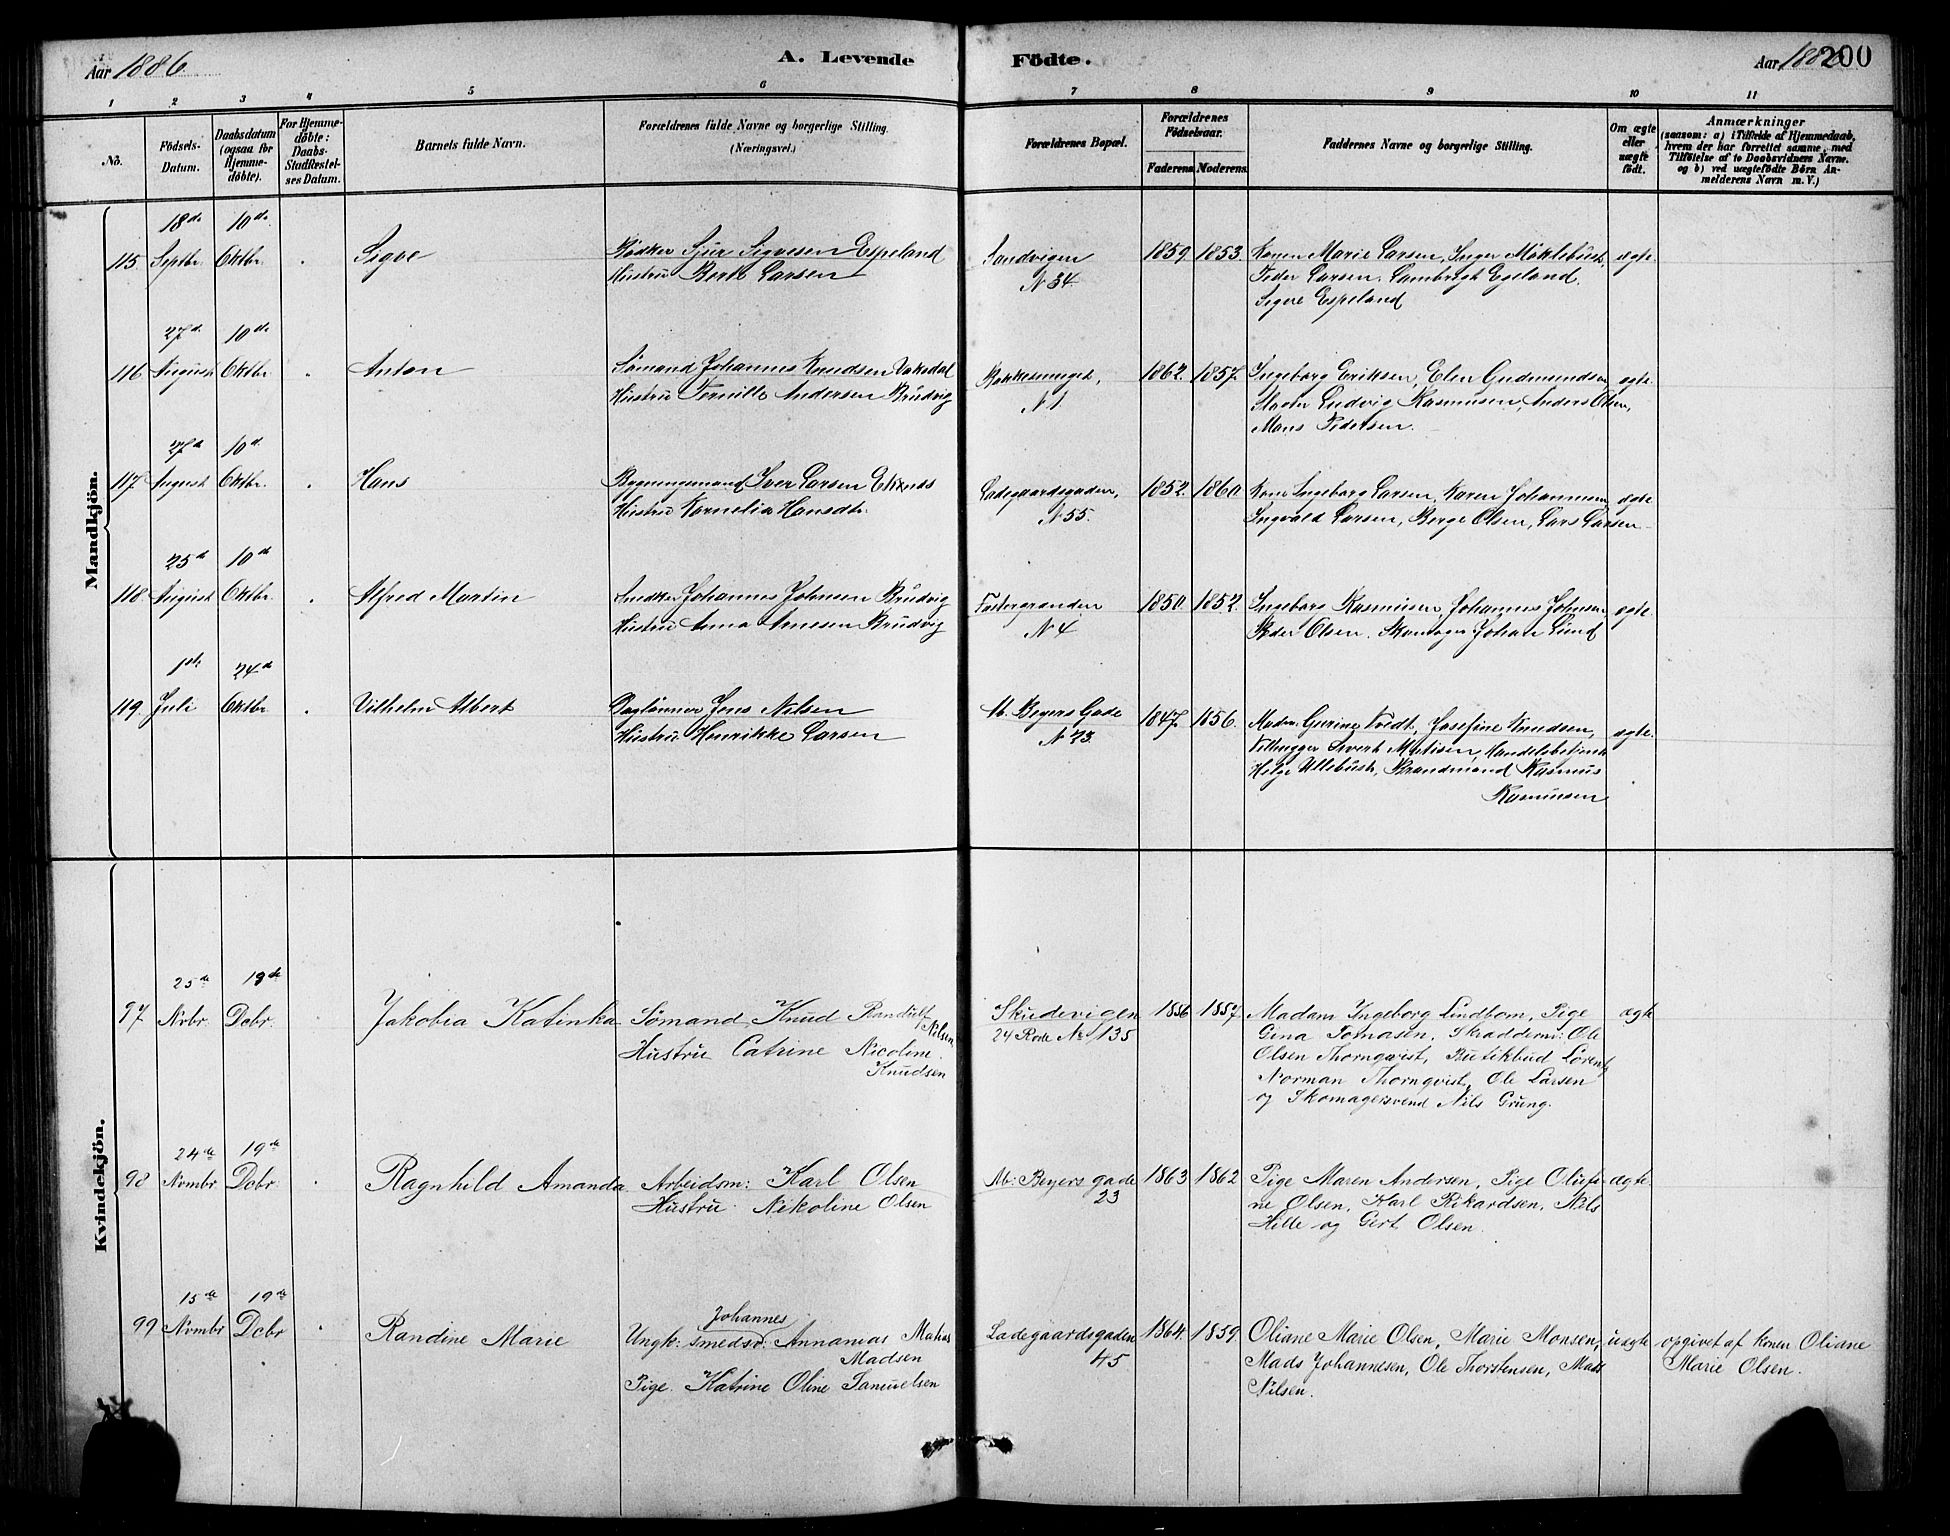 Aar 1886
A. Levende
Födte.
Aar 1886 200
1 2 3 4 5 6 7 8 9 10 11
No.
Födsels-Datum.
Daabsdatum (ogsaa for Hjemmedöbte).
For Hjemmedöbte: Daabs-Stadfestelses Datum.
Barnets fulde Navn.
Forældrenes fulde Navne og borgerlige Stilling.
(Næringsvei.)
Forældrenes Bopæl.
Forældrenes Födselsaar.
Faderens Moderens
Faddernes Navne og borgerlige Stilling.
Om ægte eller uægte födt.
Anmærkninger
(saasom: a) i Tilfælde af Hjemmedaab,
hvem der har forrettet samme, med
Tilföielse af to Daabsvidners Navne.
og b) ved uægtefödte Börn An-
melderens Navn m. V.)
Mandkjön.
18de 10de
115. Septbr. Oktbr. Sigve Bödker Sjur Sigvesen Espeland Sandvigen 1859 1853 Karen Marie Larsen, Inger Möklebust, ægte
Hustru Berte Larsen N 34 Peder Larsen, Lambregt Egeland,
Sigve Espeland
27de 10de
116. August Oktbr. Anton Sömand Johannes Knudsen Vaksdal 1862. 1857. Ingeborg Eriksen, Elen Gudmundsen ægte.
Hustru Pernille Andersen Brudvig N 1 Ludvig Rasmusen, Anders Olsen,
Mons Pedersen.
27d 10de
117. August Oktbr. Hans Bygningsmand Iver Larsen Eknes Ladegaardsgaden, 1852. 1860. Kone Ingeborg Larsen, Karen Johannesen ægte
Hustru Kornelia Hansdtr. N 55. Ingvald Larsen, Berge Olsen, Lars Larsen
25d 10d
118. August Oktbr. Alfred Martin Snedker Johannes Johnsen Brudvig 1850. 1852. Ingeborg Rasmusen, Johannes Johnsen, ægte
Hustru Anna Monsen Brudvig N 4 Peder Olsen. Skomager Johan Lund
1ste 24d
119. Juli Oktbr. Vilhelm Albert Daglönner Jens Nilsen Ab. Beyers Gade 1847. 1856. Madm. Gurine Kvedt, Josefine Knudsen, ægte.
Hustru Henrikke Larsen N 23. Sivert Matisen, Handelsbetjent
Helge Ullebust, Brandmand Rasmus
Rasmusen
Kvindekjön.
25de 19de
97 Nvbr. Dcbr. Jakobia Katinka Sömand Knud Randulf Skudevigen 1856 1857. Madam Ingeborg Lindbom, Pige ægte
Nilsen 24 Rode No 1135 Gina Tomasen, Skrædderm: Ole
Hustru Catrine Nicoline Olsen Thornqvist, Butikbud Lorentz
Knudsen Norman Thornqvist, Ole Larsen
og Skomagersvend Nils Grung.
24de 19de
98 Nvmbr. Dcbr. Ragnhild Amanda Arbeidsm: Karl Olsen Ab: Beyers gade 1863 1862 Pige Maren Andersen, Pige Olufi- ægte
Hustru Nikoline Olsen 23 ne Olsen, Karl Rikardsen, Nils
Hille og Gert Olsen.
15de 19de
99 Nvmbr Dcbr Randine Marie Ungk: smedsv: Johannes Annanias Matias Ladegaardsgaden 1864. 1859. Oliane Marie Olsen, Marie Monsen, uægte opgivet af konen Oliane
Madsen 45 Mads Johannesen, Ole Thorstensen, Mads Marie Olsen.
Pige. Katrine Oline Samuelsen Nilsen.